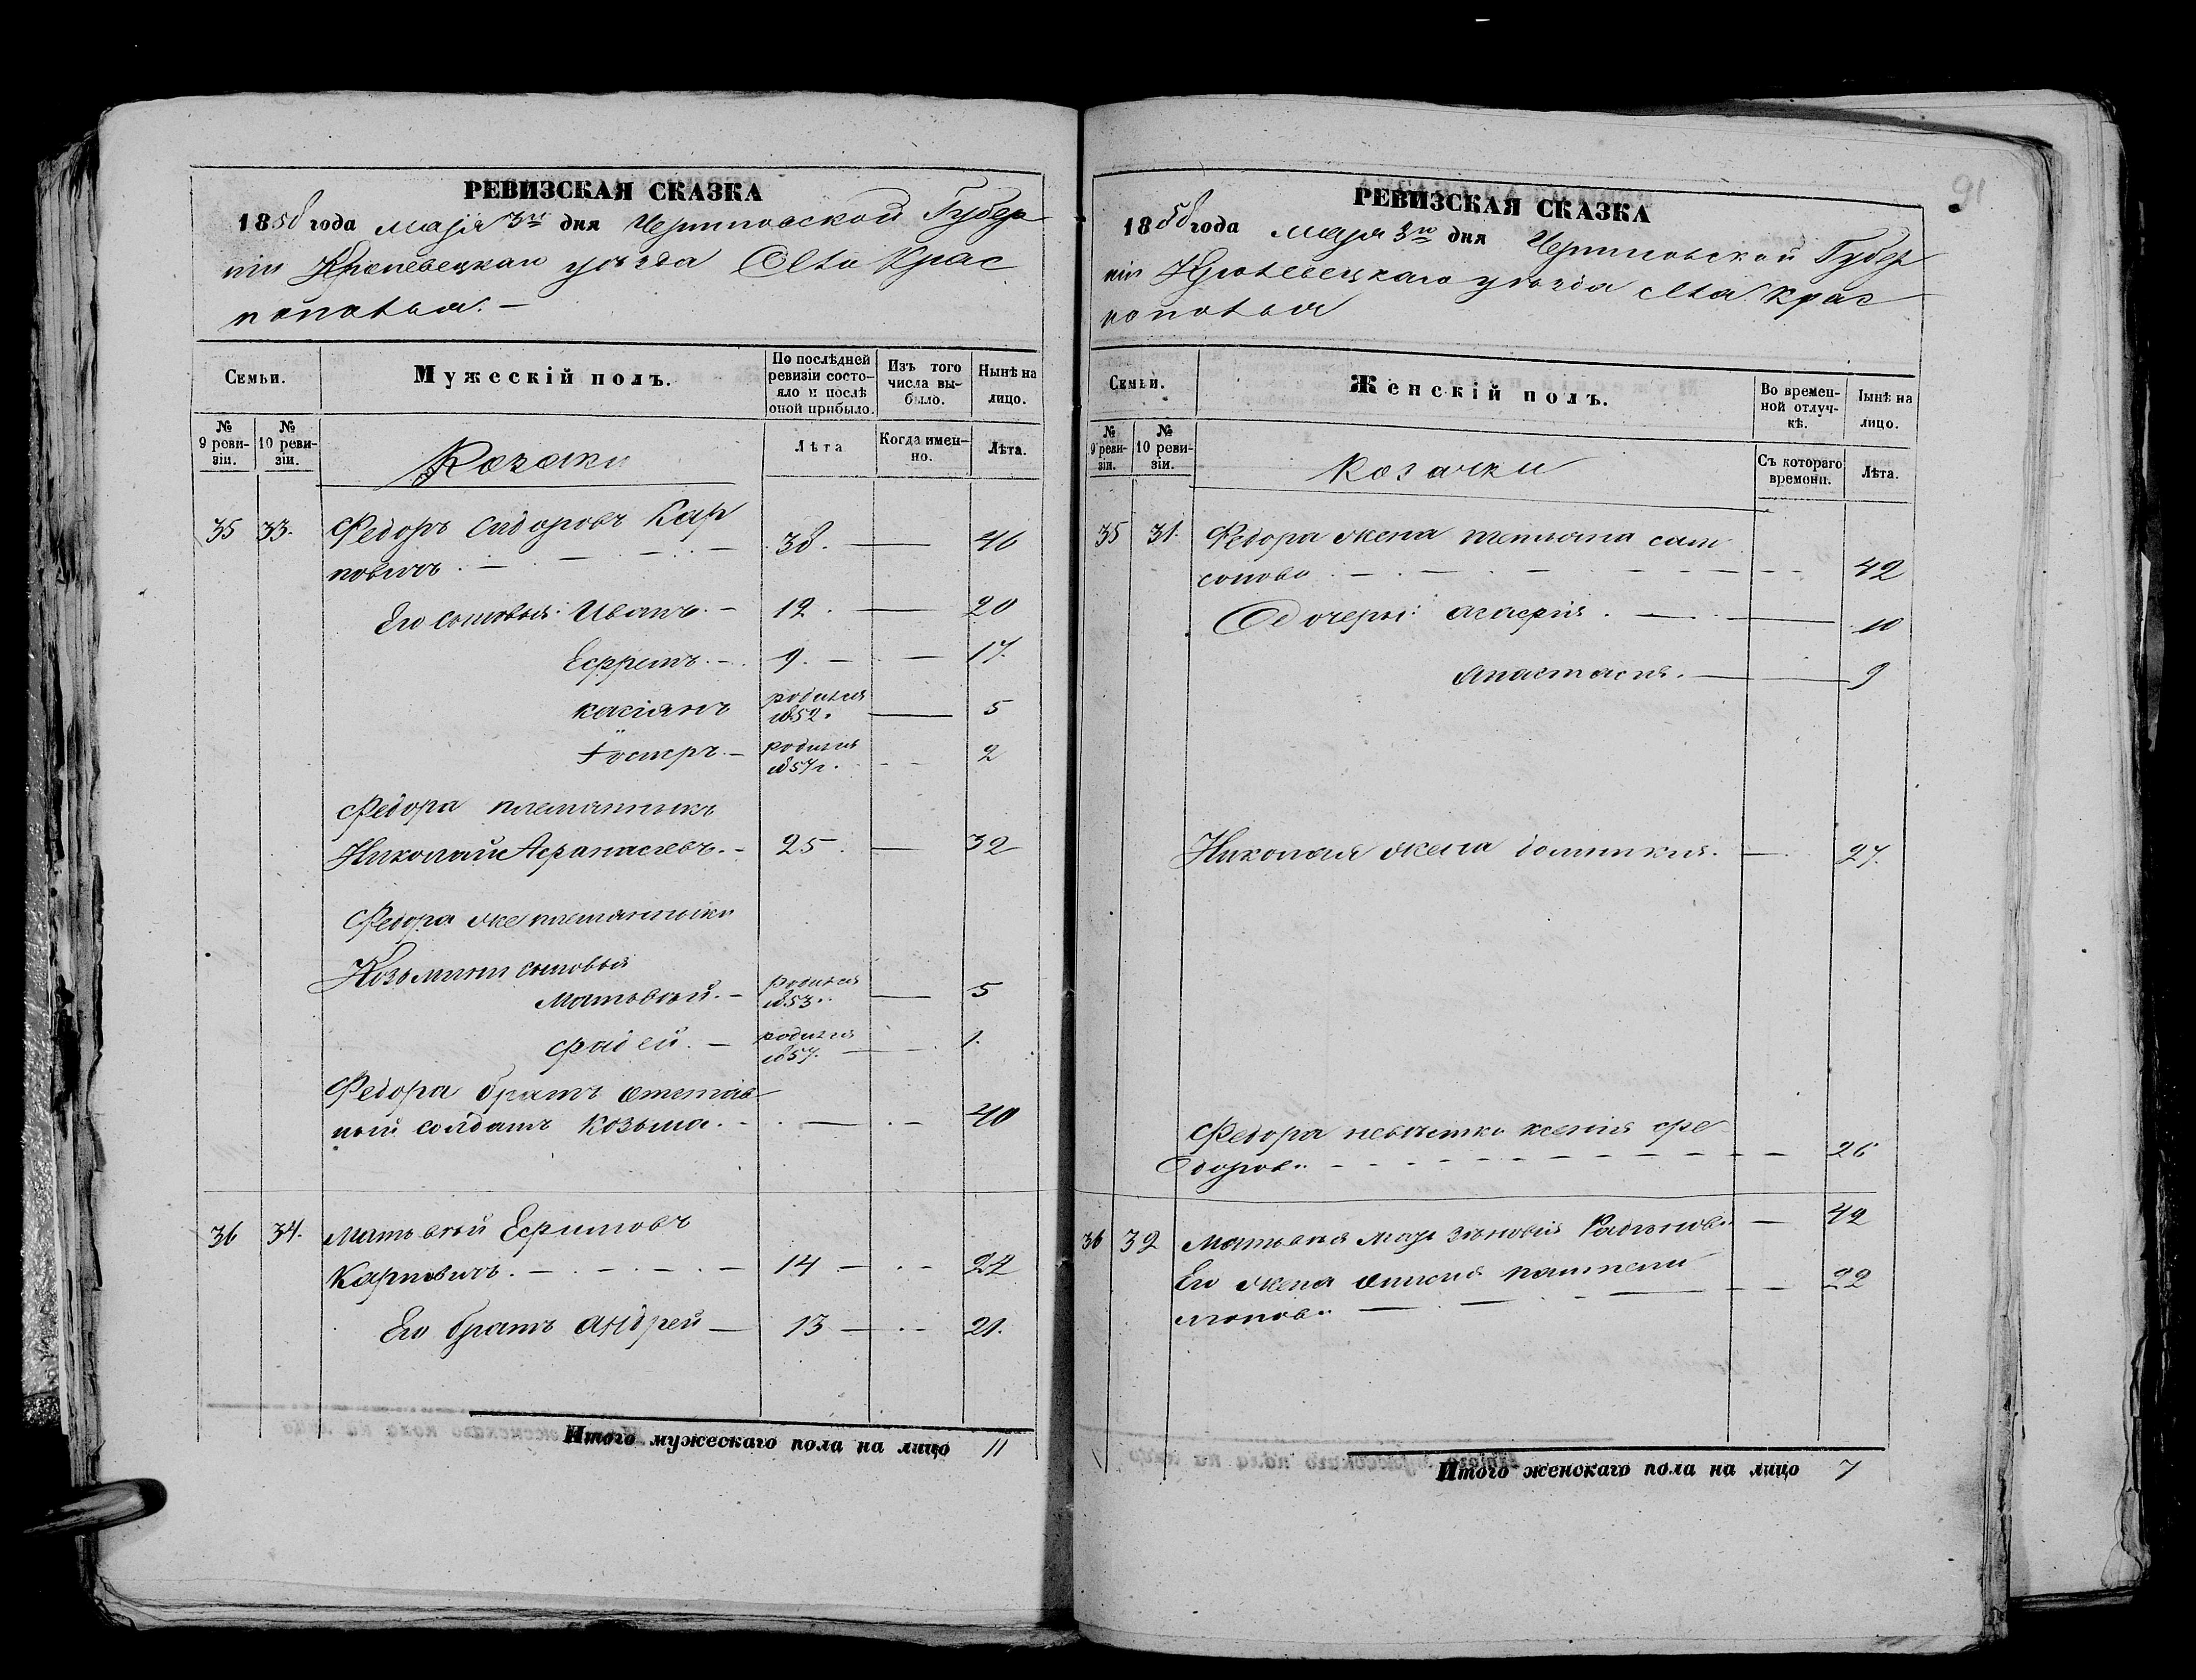 РЕВИЗСКАЯ СКАЗКА
1858 года маія 3го дня Черниговской Губер
ніи Кролевецкаго уезда Села Крас
нополья. —
Семьи.
Мужескій полъ.
По послѣдней ревизіи состо-
яло и послѣ оной прибыло.
Изъ того числа вы-
было.
Нынѣ на лицо.
№ 9 реви-
зіи.
№ 10 реви-
зіи.
Козаки
Лѣта
Когда имен-
но.
Лѣта.
35 33. Федоръ Сидоровъ Кар
повичъ . — 38. — 46
Его сыновья: Иванъ. — 12. — 20
Ефремъ. — 9. — 17.
Касіянъ родился 1852. — 5
родился 1857 г. 2
Федора племянникъ
Николай Афанасіевъ. — 25. — 32
Федора же племянники
Козьмины сыновья
Матвѣй. — родился 1853. — 5
Фадей. — родился 1857. — 1.
Федора братъ отстав
ный солдатъ Козьма. — 40
36 34. Матвѣй Ефимовъ
Карповичъ. — 14 — 22
Его братъ Андрей — 13 — 21.
Итого мужескаго пола на лицо 11
91
РЕВИЗСКАЯ СКАЗКА
1858 года маія 3го дня Черниговской Губер
ніи Кролевецкаго уезда села Крас
нополья
Семьи.
Женскій полъ.
Во времен-
ной отлуч-
кѣ.
Нынѣ на лицо.
№ 9 реви-
зіи.
№ 10 реви-
зіи.
Козачки
Съ котораго времени.
Лѣта.
35 31. Федора жена Татіана Сам
сонова — 42
Его дочери: Агафія. — 10
Анастасія. — 9
Николая жена Домникія. — 27.
Федора невѣстка Ксенія Фе
дорова — 26
36 32 Матвѣя мать Зѣновія — 42
Его жена Пантели
монова — 22
Итого женскаго пола на лицо 7